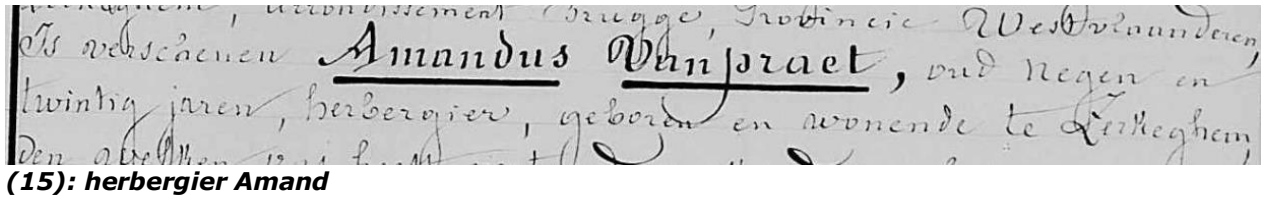 arrondissement Brugge, Provincie Westvlaanderen,
Is verschenen Amandus Vanpraet, oud negen en
twintig jaren, herbergier, geboren en wonende te Zerkeghem,
den
(15): herbergier Amand